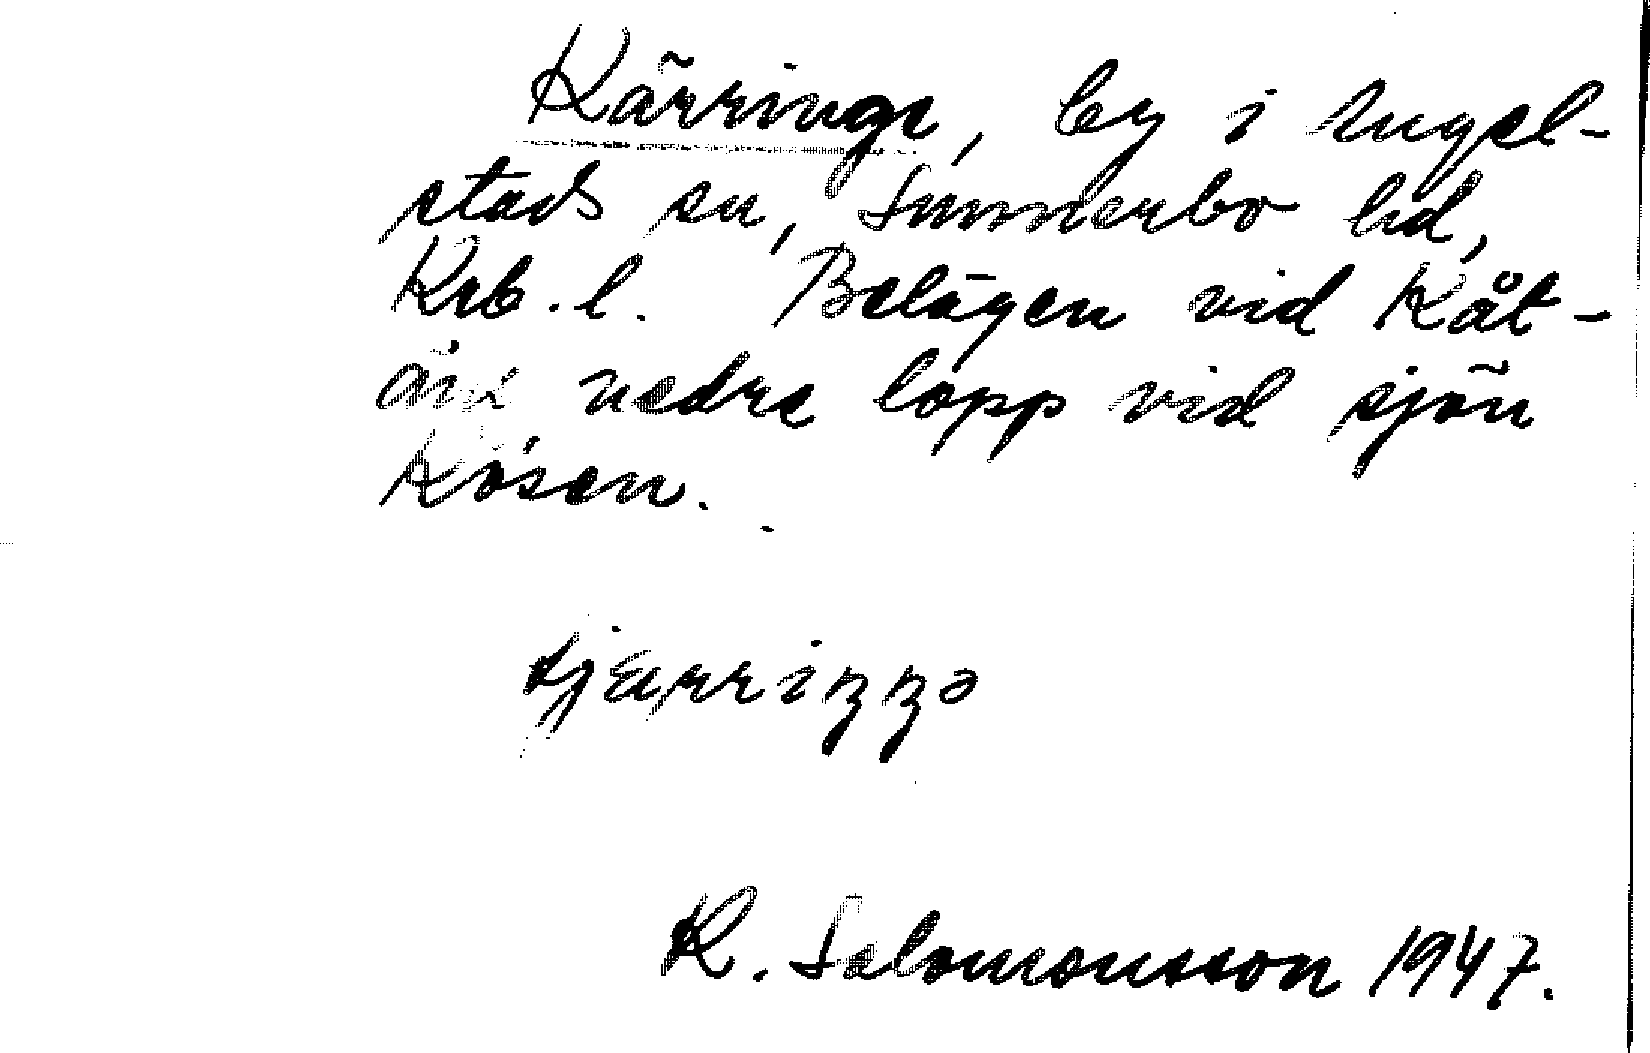 Kärringe, by i Angel-
stads sn, Sunnerbo hd,
Krb. l. Belägen vid Kåt-
åns nedre lopp vid sjön
Kösen.
tjærriŋŋə
K. Salomonsson 1947.